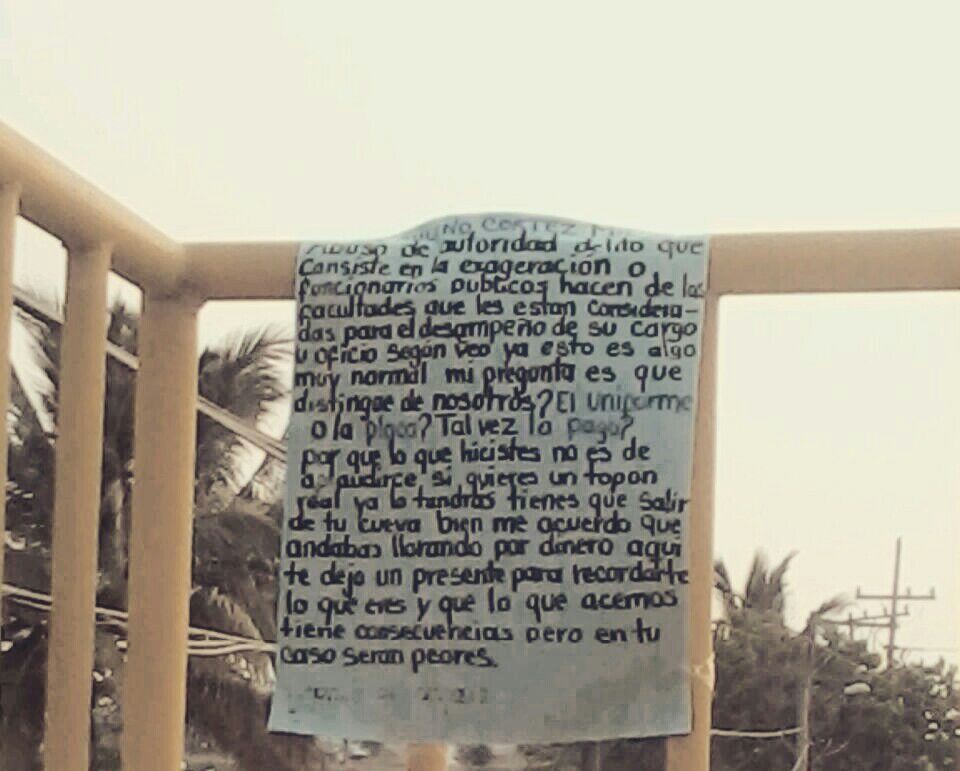 No CORTEZ
Abuso de autoridad delito que
Consiste en la exageración o
funcionarios publicos hacen de las
facultades que les estan considera-
das para el desampeño de su cargo
u oficio según veo ya esto es algo
muy normal mi pregunta es que
distingue de nosotros? El uniforme
o la placa? Tal vez la paga?
por que lo que hicistes no es de
aplaudirce si quieres un topon
real ya lo tendras tienes que salir
de tu cueva bien me acuerdo que
andabas llorando por dinero aqui
te dejo un presente para recordarte
lo que eres y que lo que acemos
tiene consecuencias pero en tu
caso seran peores.